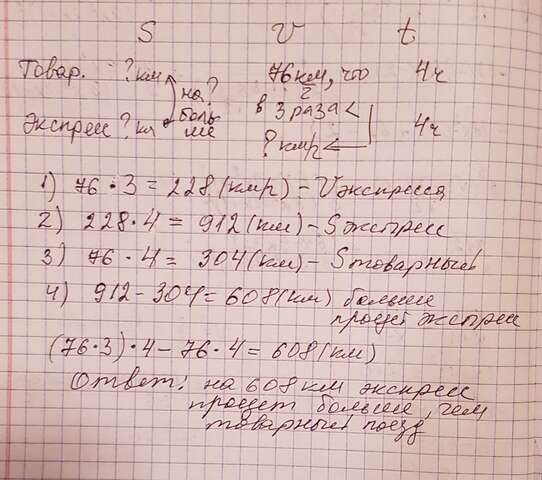 S V t
Товар. ? км 76 км/ч, что 4ч
на ? больше в 3 раза <
Экспресс ? км ? км/ч 4ч
1) 76 · 3 = 228 (км/ч) – V экспресса
2) 228 · 4 = 912 (км) – S экспресс
3) 76 · 4 = 304 (км) – S товарный
4) 912 – 304 = 608 (км) больше
проедет экспресс
(76·3)·4 – 76·4 = 608 (км)
Ответ: на 608 км экспресс
проедет больше, чем
товарный поезд